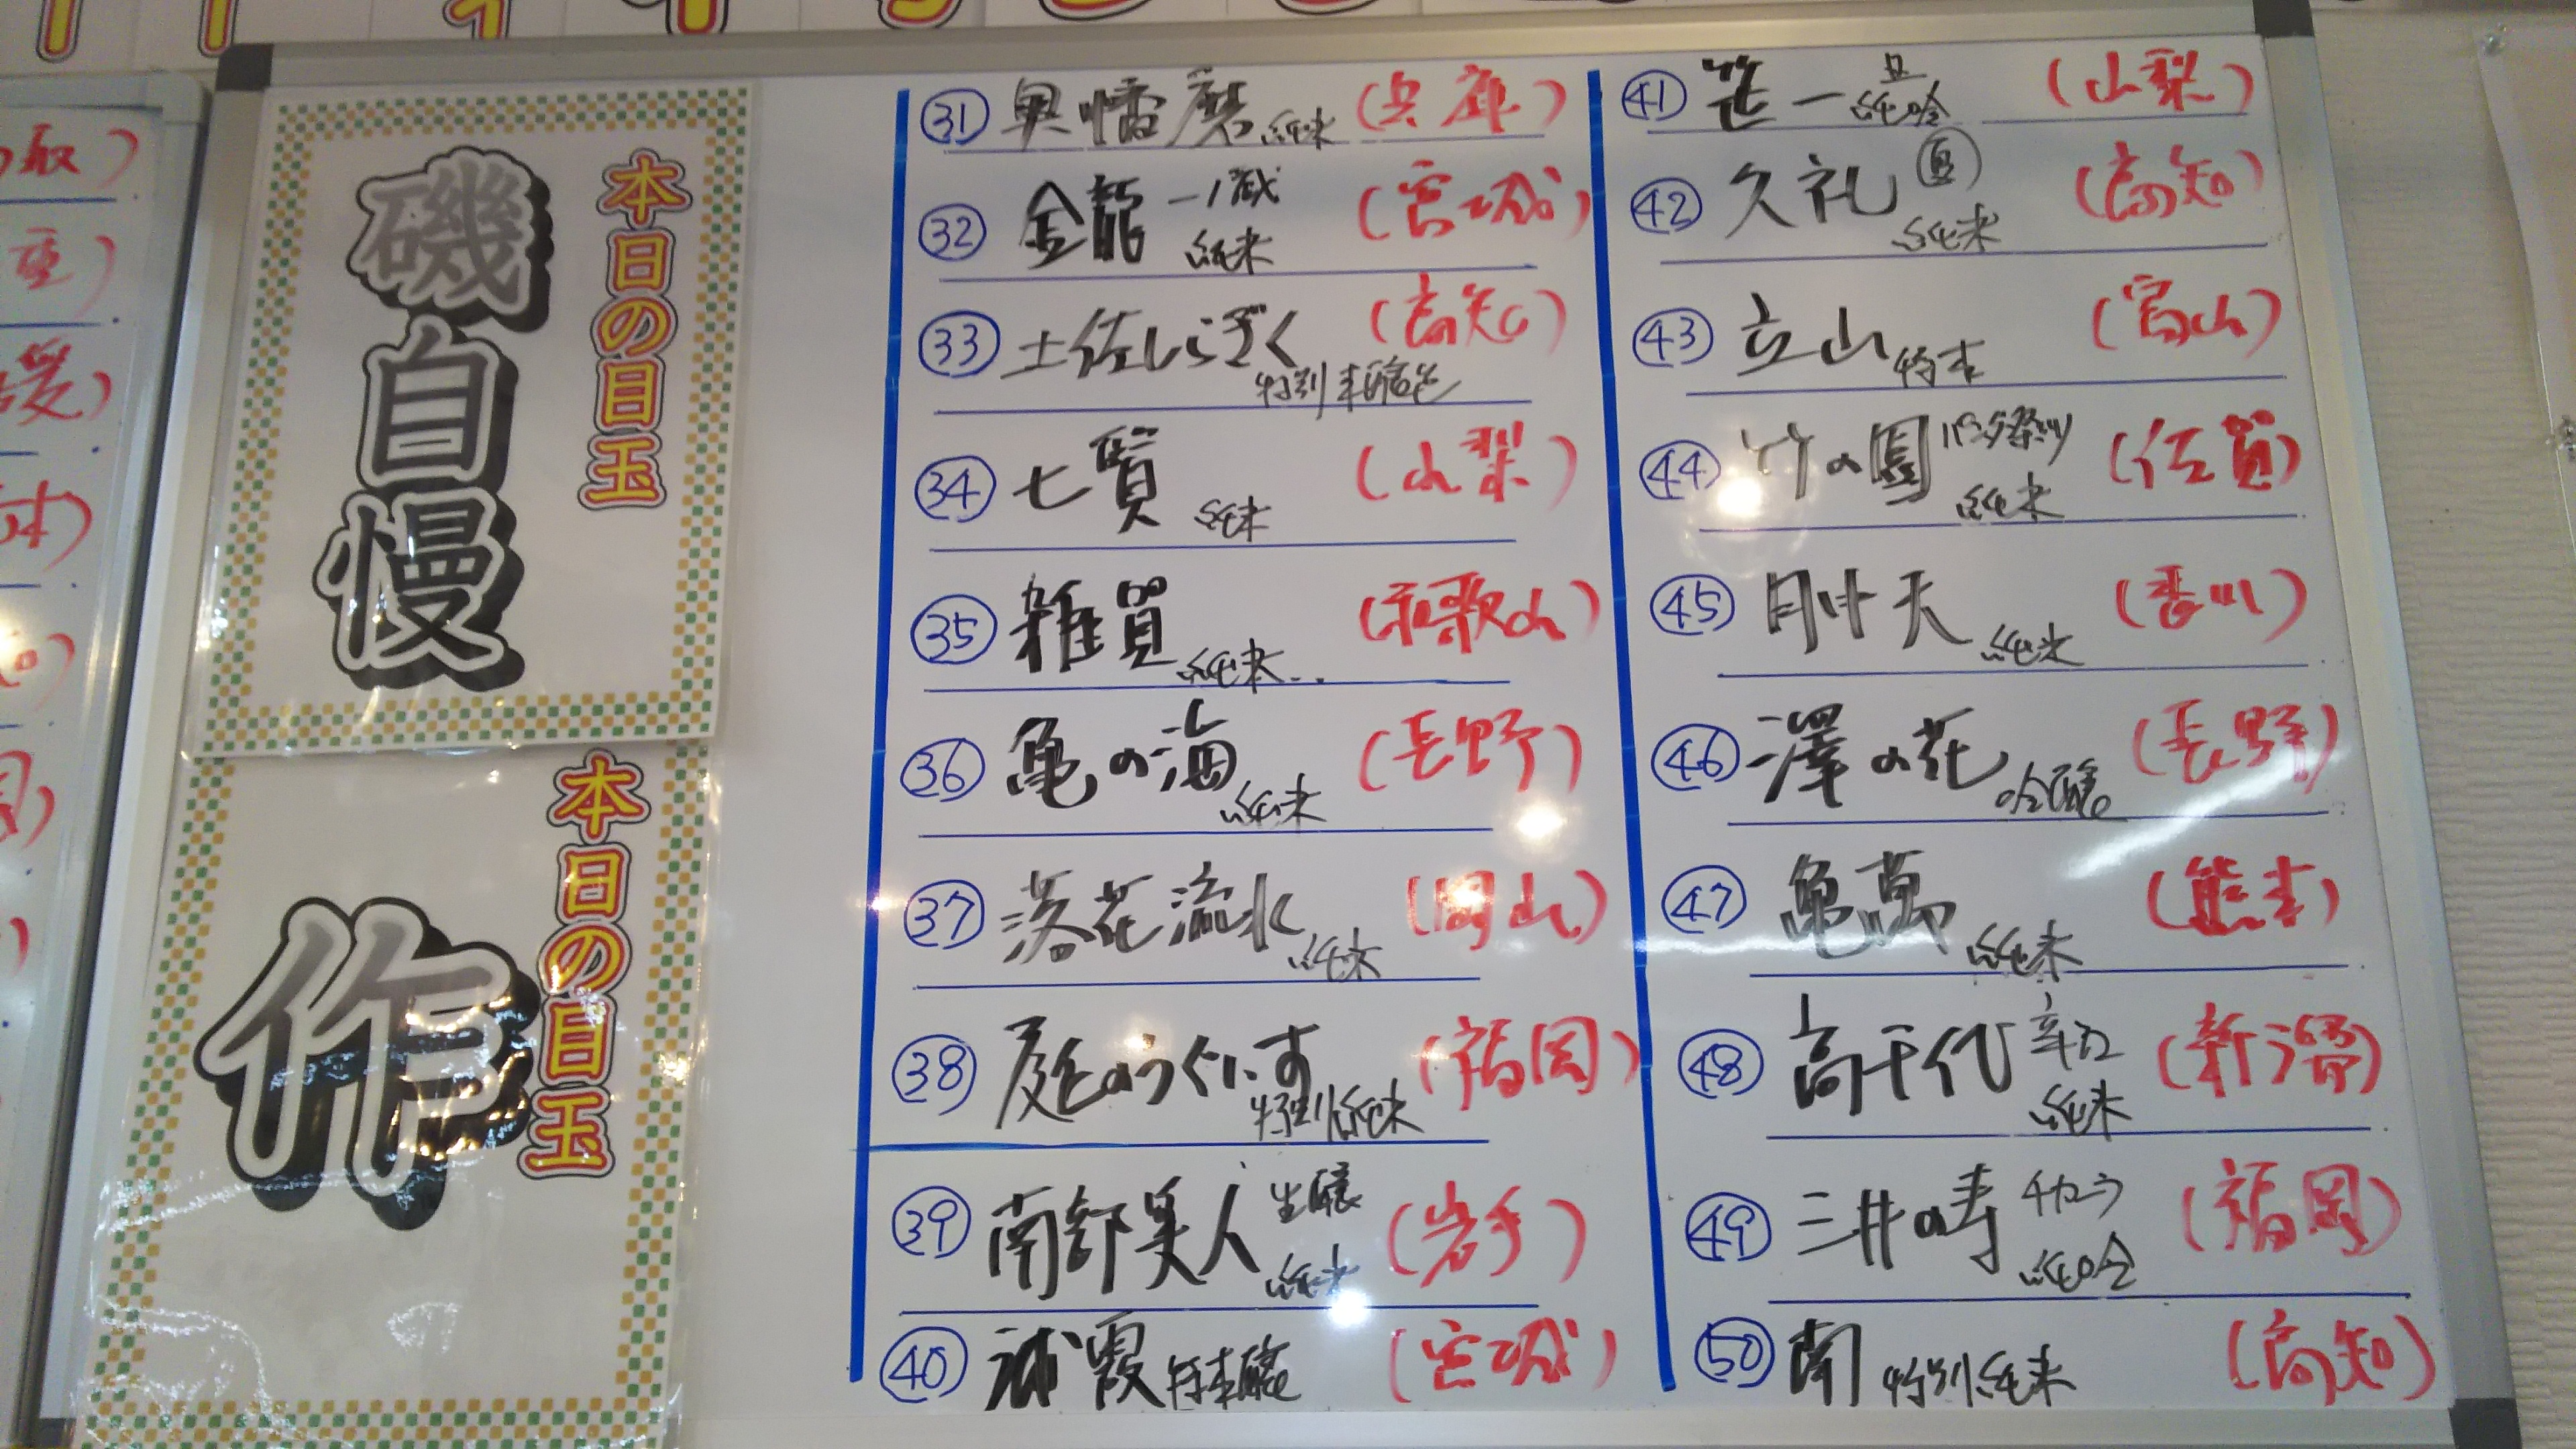 本日の目玉
磯自慢
本日の目玉
作
㉛ 奥播磨 純米 (兵庫)
㉜ 金龍 一ノ蔵 純米 (宮城)
㉝ 土佐しらぎく 特別本醸造 (高知)
㉞ 七賢 純米 (山梨)
㉟ 雑賀 純米 (和歌山)
㊱ 亀の海 純米 (長野)
㊲ 落花流水 純米 (岡山)
㊳ 庭のうぐいす 特別純米 (福岡)
㊴ 南部美人 純米 (岩手)
㊵ 浦霞 特本醸 (宮城)
㊶ 笹一 純吟 (山梨)
㊷ 久礼 純米 (高知)
㊸ 立山 特本 (富山)
㊹ 竹の園 純米 (佐賀)
㊺ 川鶴 純米 (香川)
㊻ 澤の花 吟醸 (長野)
㊼ 亀萬 純米 (熊本)
㊽ 高千代 辛口 純米 (新潟)
㊾ 三井の寿 チカラ 純吟 (福岡)
㊿ 南 特別純米 (高知)
取)
重)
媛)
本)